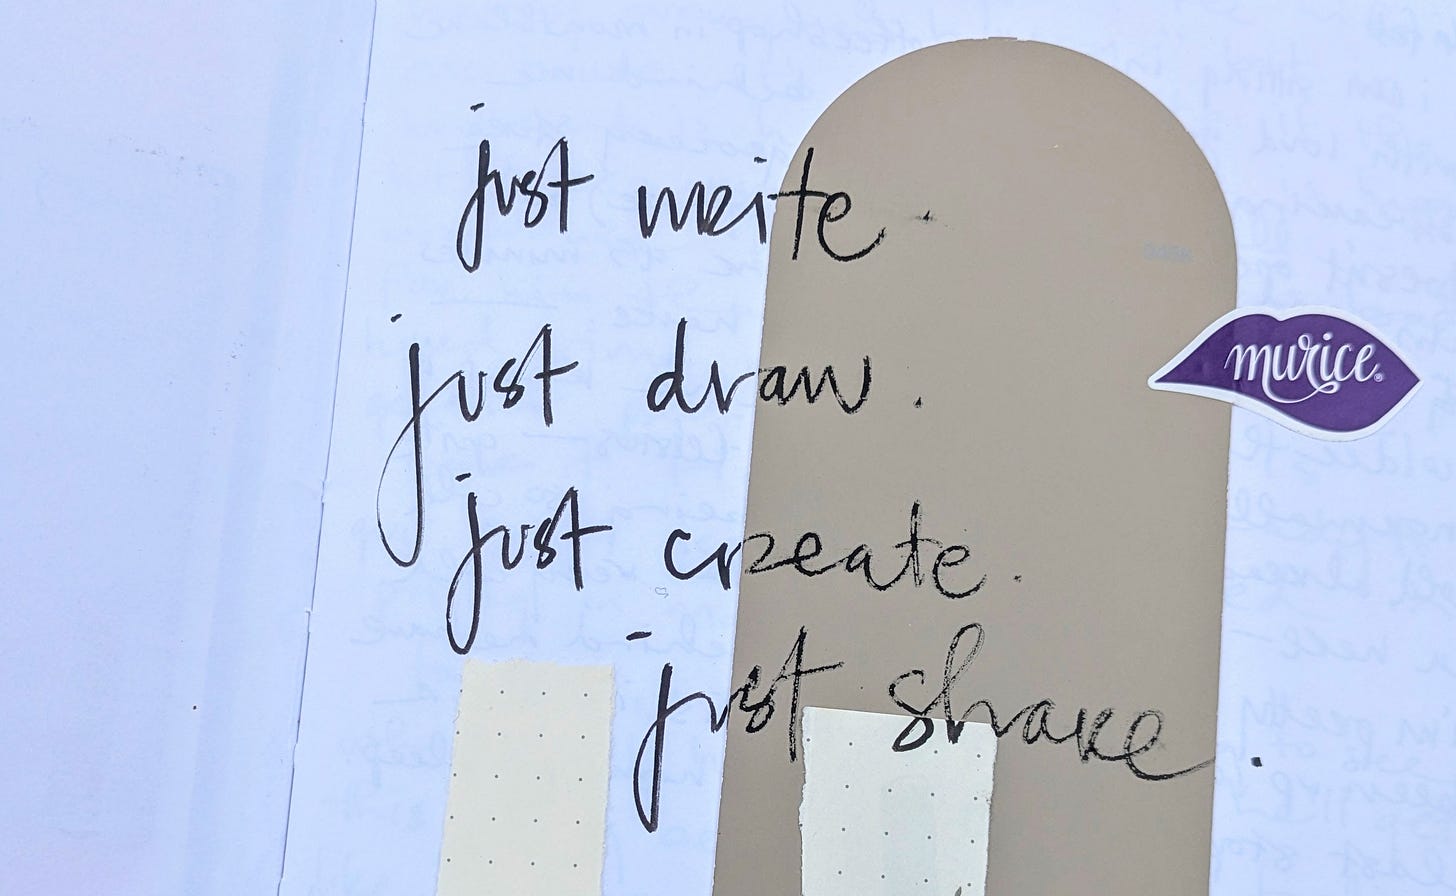 just write.
just draw.
murice®
just create.
just share.